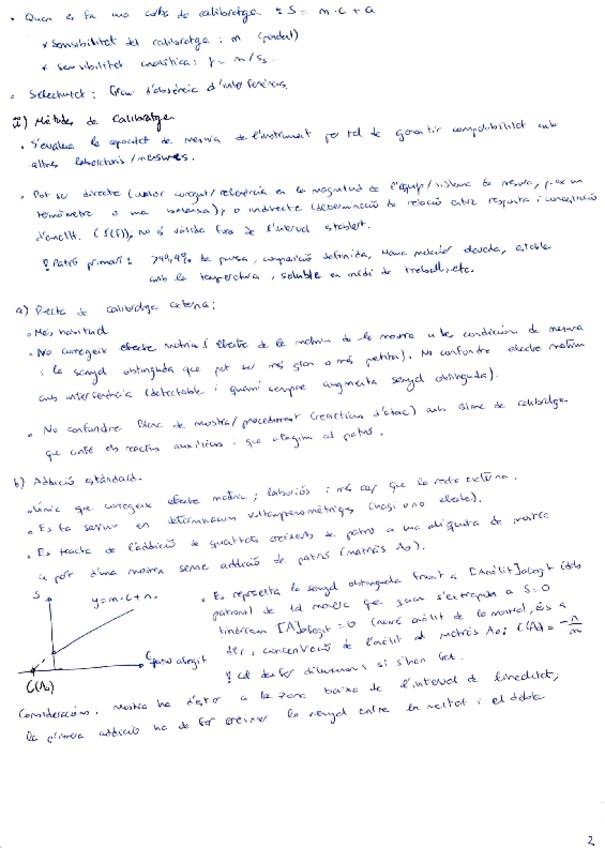 • Quan es fa una corba de calibratge: S = m·c + a
* Sensibilitat del calibratge: m (pendent)
* sensibilitat analítica: γ = m/Ss
• Selectivitat: Grau d'absència d'interferències.
ii) Mètodes de Calibratge
• S'avalua la capacitat de mesura de l'instrument per tal de garantir compatibilitat amb
altres laboratoris/mesures.
• Pot ser directe (valor conegut/referència en la magnitud de l'equip/sistema de mesura, p.ex un
termòmetre o una balança); o indirecte (determinació de relació entre resposta i concentració
d'anàlit. (S(f)), no és vàlida fora de l'interval establert.
! Patró primari: >99,9% de puresa, composició definida, massa molecular elevada, estable
amb la temperatura, soluble en medi de treball, etc.
a) Recta de calibratge externa:
• Més habitual
• No corregeix efecte matriu (efecte de la matriu de la mostra a les condicions de mesura
i la senyal obtinguda que pot ser més gran o més petita). No confondre efecte matriu
amb interferència (detectable i quasi sempre augmenta senyal obtinguda).
• No confondre Blanc de mostra/procediment (reactius d'atac) amb Blanc de calibratge
que conté els reactius auxiliars i que afegim al patró.
b) Addició estàndard.
• Únic que corregeix efecte matriu; laboriós i més car que la recta externa.
• Es fa servir en determinacions voltamperomètriques (hagi o no efecte).
• Es tracta de l'addició de quantitats creixents de patró a una alíquota de mostra
a partir d'una mostra sense addició de patró (matràs A₀).
S
y = m·c + n.
C patró afegit
C(A₀)
• Es representa la senyal obtinguda front a [Anàlit]afegit (dels
patrons) de tal manera que quan s'extrapola a S=0
tindrem [A]afegit = 0 (només anàlit de la mostra), és a
dir, concentració de l'anàlit al matràs A₀; C(A₀) = -n/m
! Cal desfer dilucions si s'han fet.
Consideracions. Mostra ha d'estar a la zona baixa de l'interval de linealitat;
la primera addició ha de fer créixer la senyal entre la meitat i el doble
2